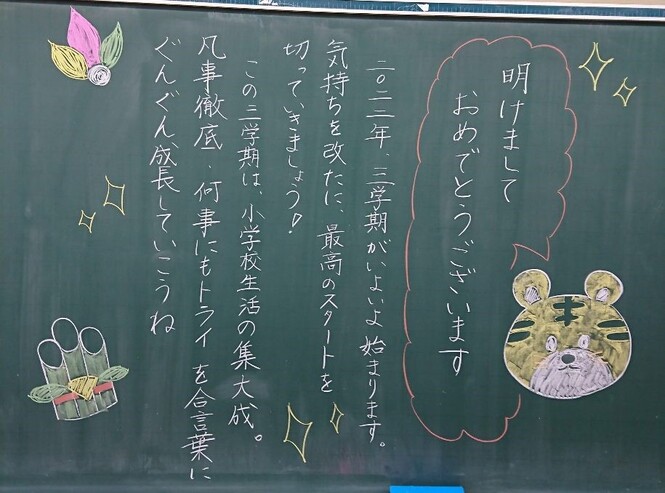 明けまして
おめでとうございます
二〇二二年、三学期がいよいよ始まります。
気持ちを改たに、最高のスタートを
切っていきましょう!
この三学期は、小学校生活の集大成。
凡事徹底・何事にもトライ を合言葉に
ぐんぐん成長していこうね